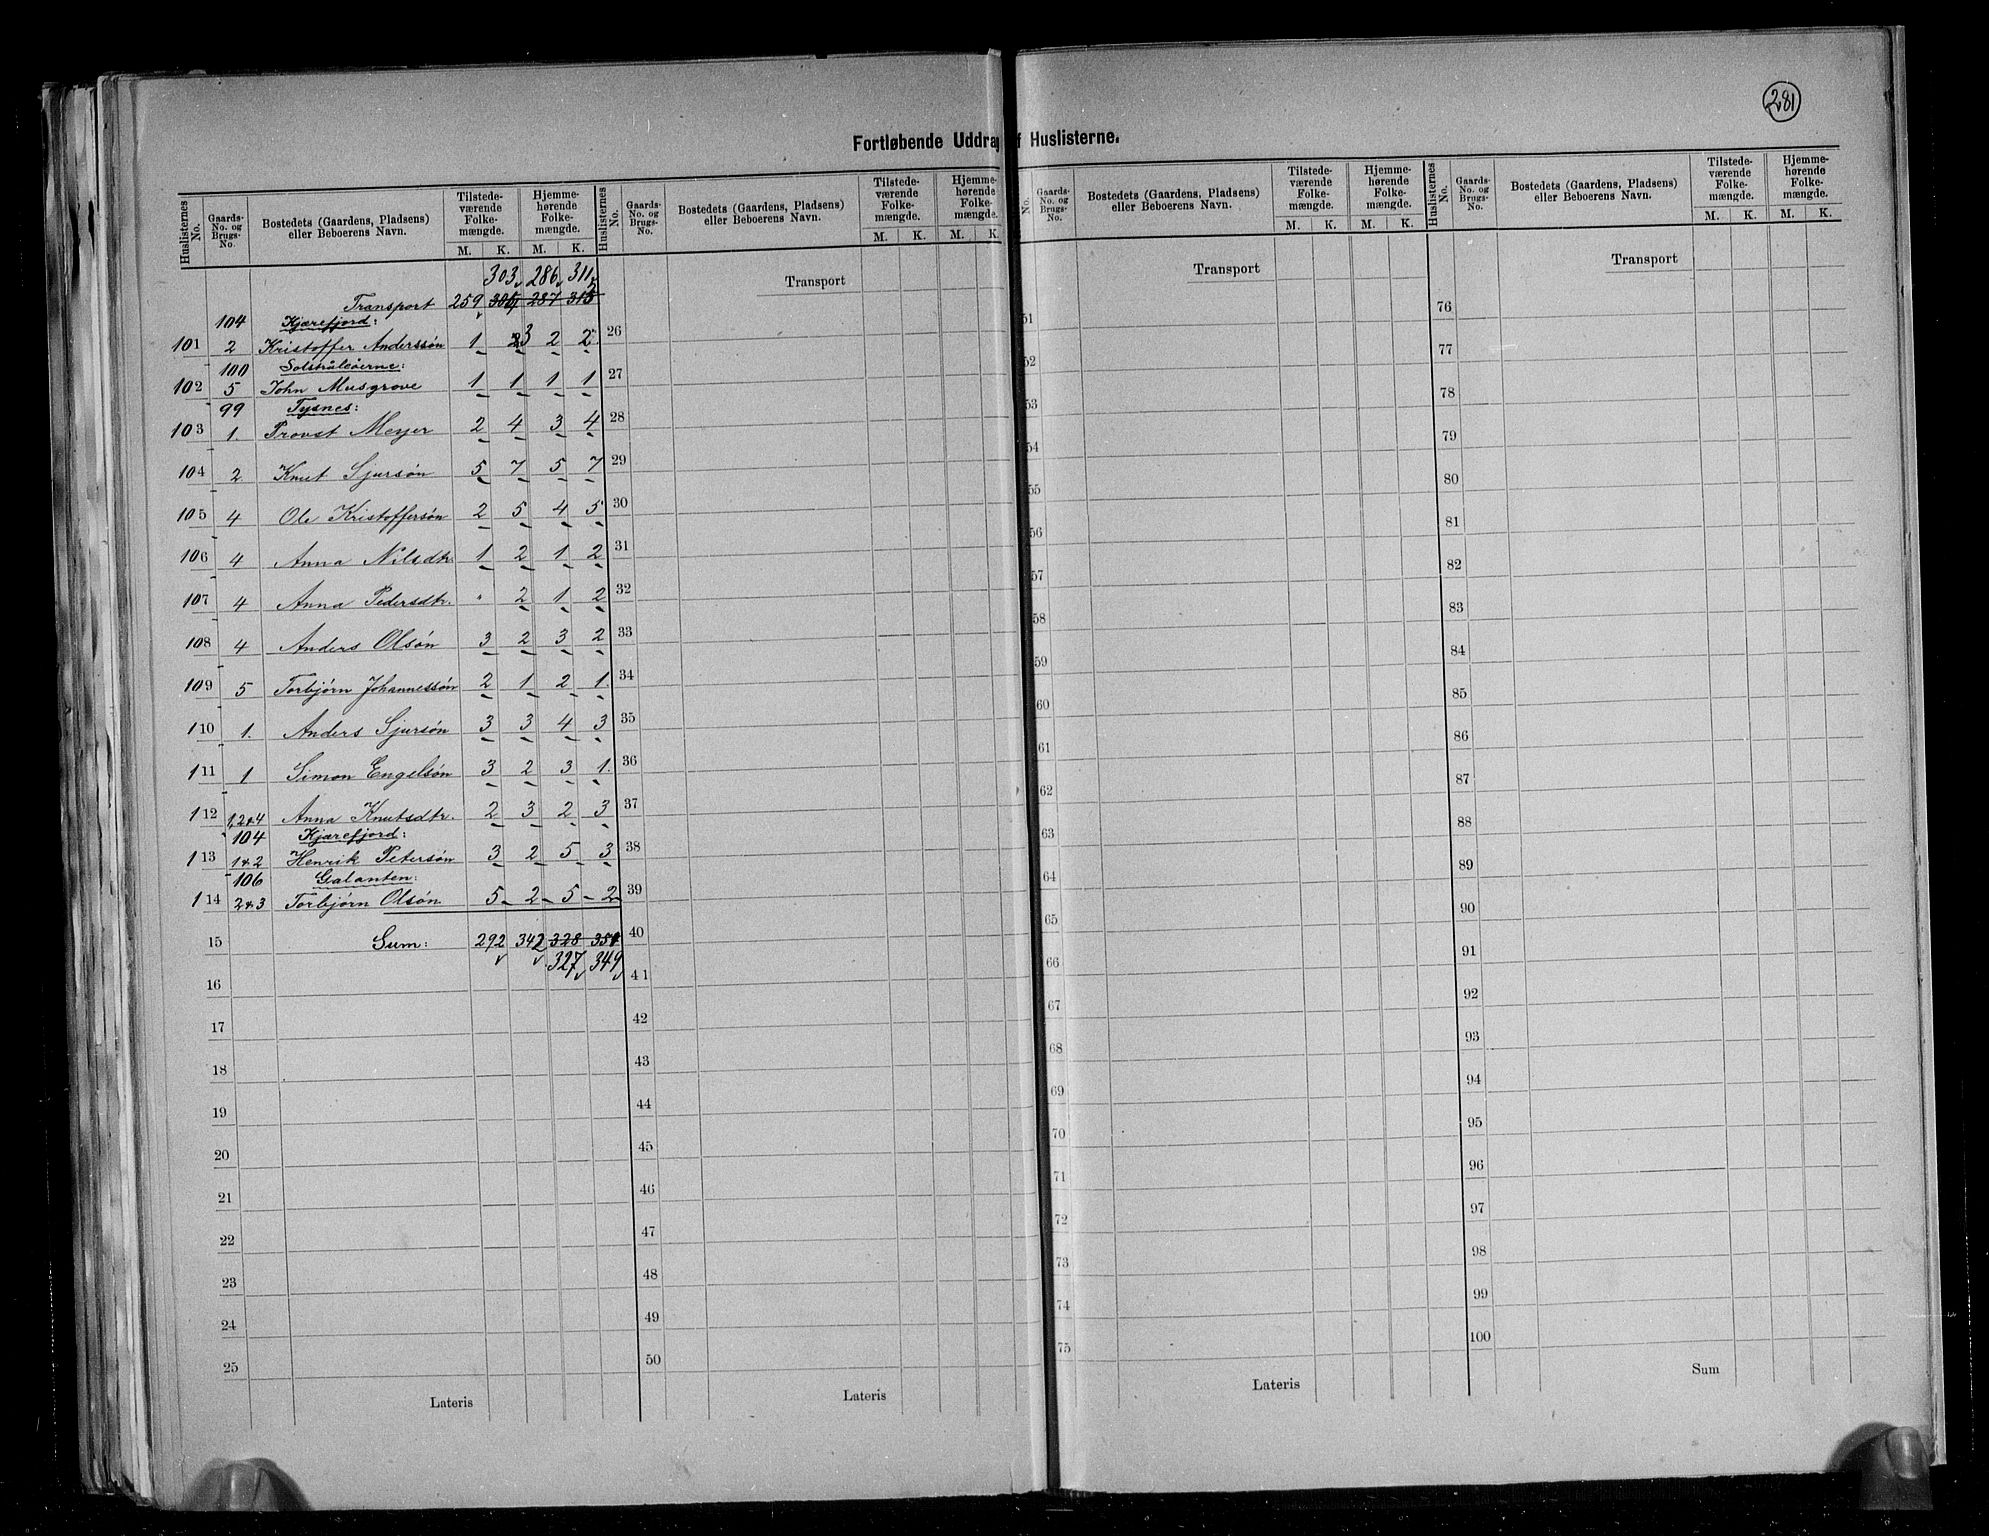 281
Fortløbende Uddra f Huslisterne.
Huslisternes No. Gaards-No. og Brugs-No. Bostedets (Gaardens, Pladsens) eller Beboerens Navn. Tilstede-værende Folke-mængde. M. K. Hjemme-hørende Folke-mængde. M. K.
303 286 311
Transport 259 305 287 313
104 Kjærefjord:
101 2 Kristoffer Anderssøn 1 3 2 2
100 Solstråleøerne:
102 5 John Musgrove 1 1 1 1
99 Tysnes:
103 1. Provst Meyer 2 4 3 4
104 2 Knut Sjursøn 5 7 5 7
105 4 Ole Kristoffersøn 2 5 4 5
106 4 Anna Nilsdtr. 1 2 1 2
107 4 Anna Pedersdtr. " 2 1 2
108 4 Anders Olsøn 3 2 3 2
109 5 Torbjørn Johannessøn 2 1 2 1.
110 1. Anders Sjursøn 3 3 4 3
111 1 Simon Engelsøn 3 2 3 1.
112 1,2&4 Anna Knutsdtr. 2 3 2 3
104 Kjærefjord:
113 1&2 Henrik Petersøn 3 2 5 3
106 Galanten:
114 2&3 Torbjørn Olsøn 5 2 5 2
15 Sum: 292 342 328 351
327 349
16
17
18
19
20
21
22
23
24
25
Lateris
Huslisternes No. Gaards-No. og Brugs-No. Bostedets (Gaardens, Pladsens) eller Beboerens Navn. Tilstede-værende Folke-mængde. M. K. Hjemme-hørende Folke-mængde. M. K.
Transport
26
27
28
29
30
31
32
33
34
35
36
37
38
39
40
41
42
43
44
45
46
47
48
49
50
Lateris
No. Gaards-No. og Brugs-No. Bostedets (Gaardens, Pladsens) eller Beboerens Navn. Tilstede-værende Folke-mængde. M. K. Hjemme-hørende Folke-mængde. M. K.
Transport
51
52
53
54
55
56
57
58
59
60
61
62
63
64
65
66
67
68
69
70
71
72
73
74
75
Lateris
Huslisternes No. Gaards-No. og Brugs-No. Bostedets (Gaardens, Pladsens) eller Beboerens Navn. Tilstede-værende Folke-mængde. M. K. Hjemme-hørende Folke-mængde. M. K.
Transport
76
77
78
79
80
81
82
83
84
85
86
87
88
89
90
91
92
93
94
95
96
97
98
99
100
Sum